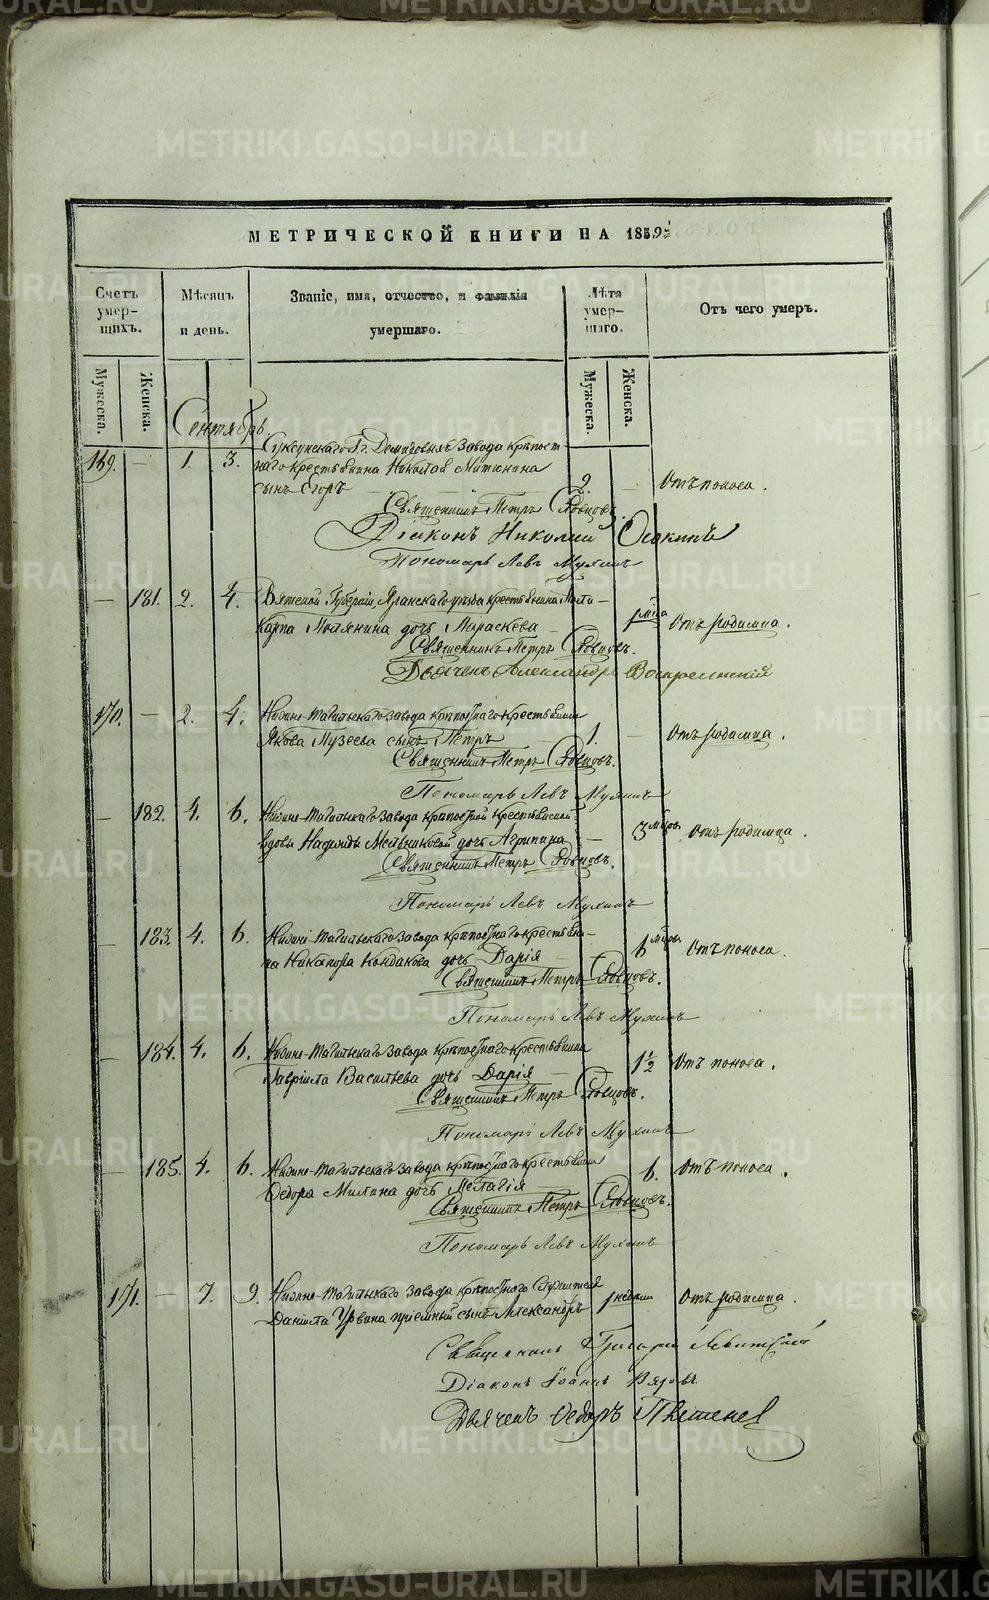 МЕТРИЧЕСКОЙ КНИГИ НА 1859й
Счетъ умер-шихъ.
Мѣсяцъ и день.
Званіе, имя, отчество, и фамилія умершаго.
Лѣта умер-шаго.
Отъ чего умеръ.
Мужеска.
Женска.
Мужеска.
Женска.
Сентябрь
Суксунскаго Гг. Демидовыхъ завода крѣпост
169. — 1. 3. наго крестьянина Николая Митюнина
сынъ Егоръ — 2. — Отъ поноса.
Священникъ Петръ
Діаконъ Николай Осокинъ
Пономарь Левъ Мухинъ
— 181. 2. 4. Вятской Губерніи, Яранскаго уѣзда крестьянина Поли-
карпа дочь Параскева — 1 мѣсяца Отъ родимца.
Священникъ Петръ
Дьячекъ Александръ Воскресенскій
170. — 2. 4. Нижне-Тагильскаго завода крѣпостнаго крестьянина
Якова Пузеева сынъ Петръ — 1. — Отъ родимца.
Священникъ Петръ
Пономарь Левъ Мухинъ
— 182. 4. 6. Нижне-Тагильскаго завода крѣпостной крестьянской
вдовы Надежды Мельниковой дочь Агрипина — 3 мѣсяцъ Отъ родимца.
Священникъ Петръ
Пономарь Левъ Мухинъ
— 183. 4. 6. Нижне-Тагильскаго завода крѣпостнаго крестьяни-
на Никанора Кондакова дочь Дарія — 6 мѣсяцъ Отъ поноса.
Священникъ Петръ
Пономарь Левъ Мухинъ
— 184. 4. 6. Нижне-Тагильскаго завода крѣпостнаго крестьянина
Гавріила Васильева дочь Дарія — 1½ Отъ поноса.
Священникъ Петръ
Пономарь Левъ Мухинъ
— 185. 4. 6. Нижне-Тагильскаго завода крѣпостнаго крестьянина
Ѳедора Милина дочь Пелагія — 6. Отъ поноса.
Священникъ Петръ
Пономарь Левъ Мухинъ
171. — 7. 9. Нижне-Тагильскаго завода крѣпостного служителя
Даніила Урвина пріемный сынъ Александръ 1 недѣли Отъ родимца.
Священникъ Григорій Левитскій
Діаконъ Іоаннъ
Дьячекъ Ѳедоръ
METRIKI.GASO-URAL.RU